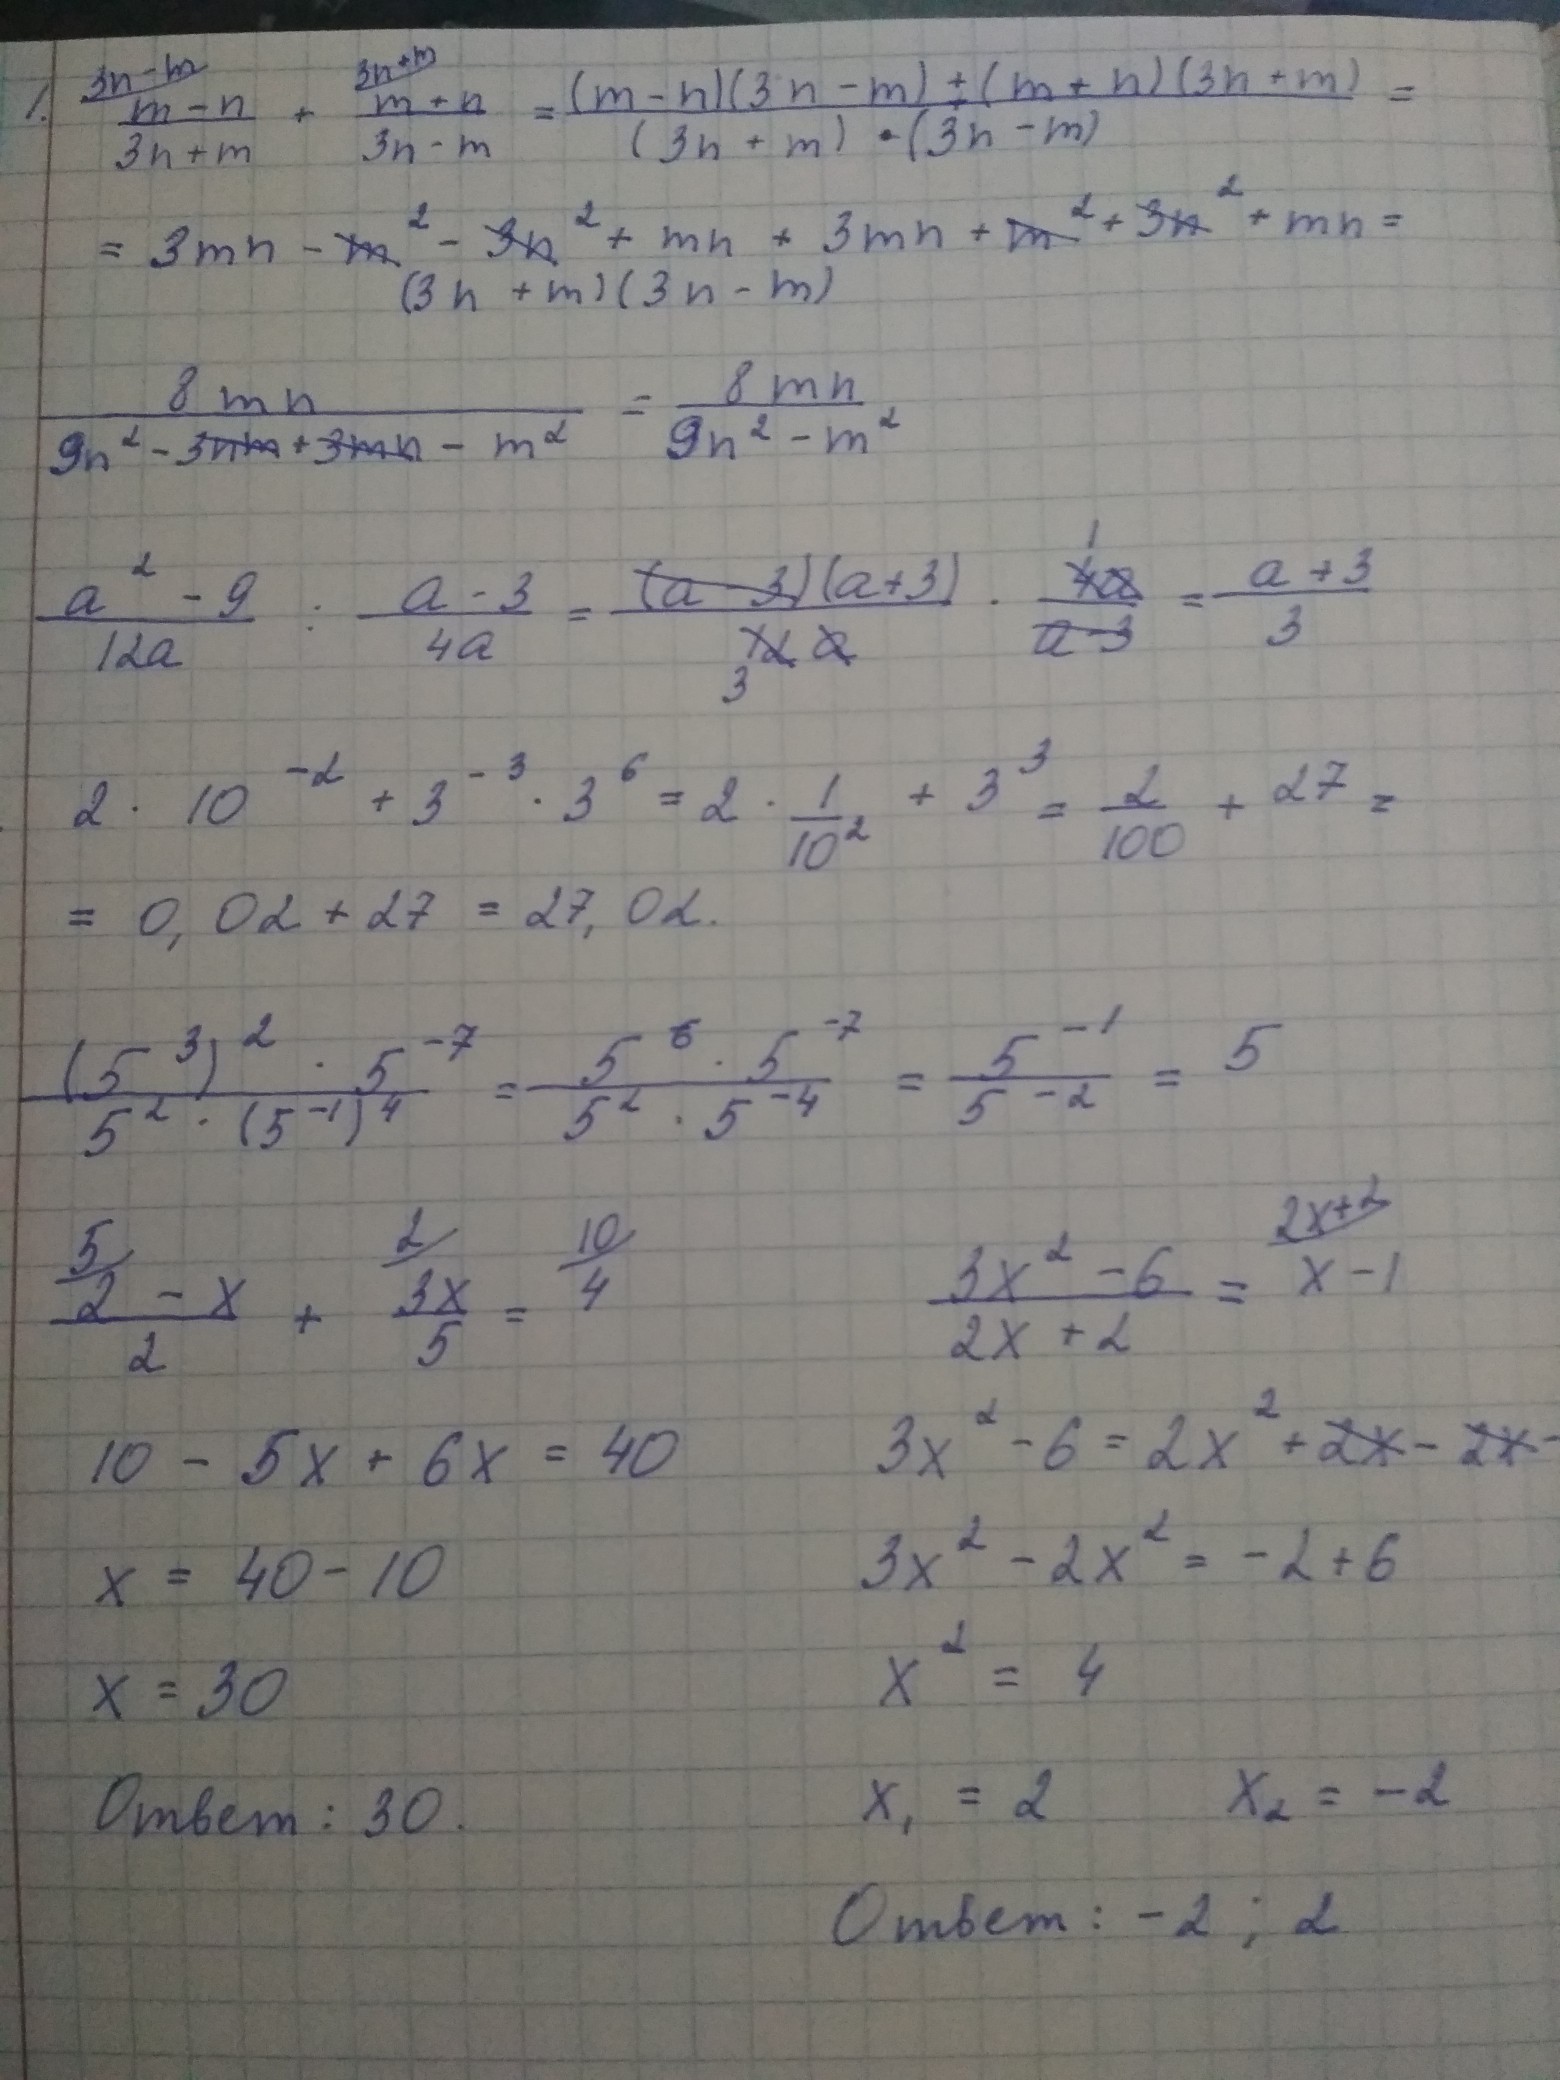 1. 3n-m/ (m-n)/(3n+m) + 3n+m/ (m+n)/(3n-m) = ((m-n)(3n-m)+(m+n)(3n+m))/((3n+m)·(3n-m)) =
= (3mn - m² - 3n² + mn + 3mn + m² + 3n² + mn)/((3n+m)(3n-m)) =
8mn/(9n² - 3nm + 3mn - m²) = 8mn/(9n² - m²)
(a² - 9)/12a : (a-3)/4a = (a-3)(a+3)/(12a) 3 · 1 4a/(a-3) = (a+3)/3
2 · 10⁻² + 3⁻³ · 3⁶ = 2 · 1/10² + 3³ = 2/100 + 27 =
= 0,02 + 27 = 27,02.
((5³)² · 5⁻⁷)/(5² · (5⁻¹)⁴) = (5⁶ · 5⁻⁷)/(5² · 5⁻⁴) = 5⁻¹/5⁻² = 5
5/ (2-x)/2 + 2/ 3x/5 = 10/ 4
10 - 5x + 6x = 40
x = 40 - 10
x = 30
Ответ: 30.
(3x² - 6)/(2x+2) = 2x+2/ x-1
3x² - 6 = 2x² + 2x - 2x -
3x² - 2x² = -2+6
x² = 4
x₁ = 2 x₂ = -2
Ответ: -2; 2